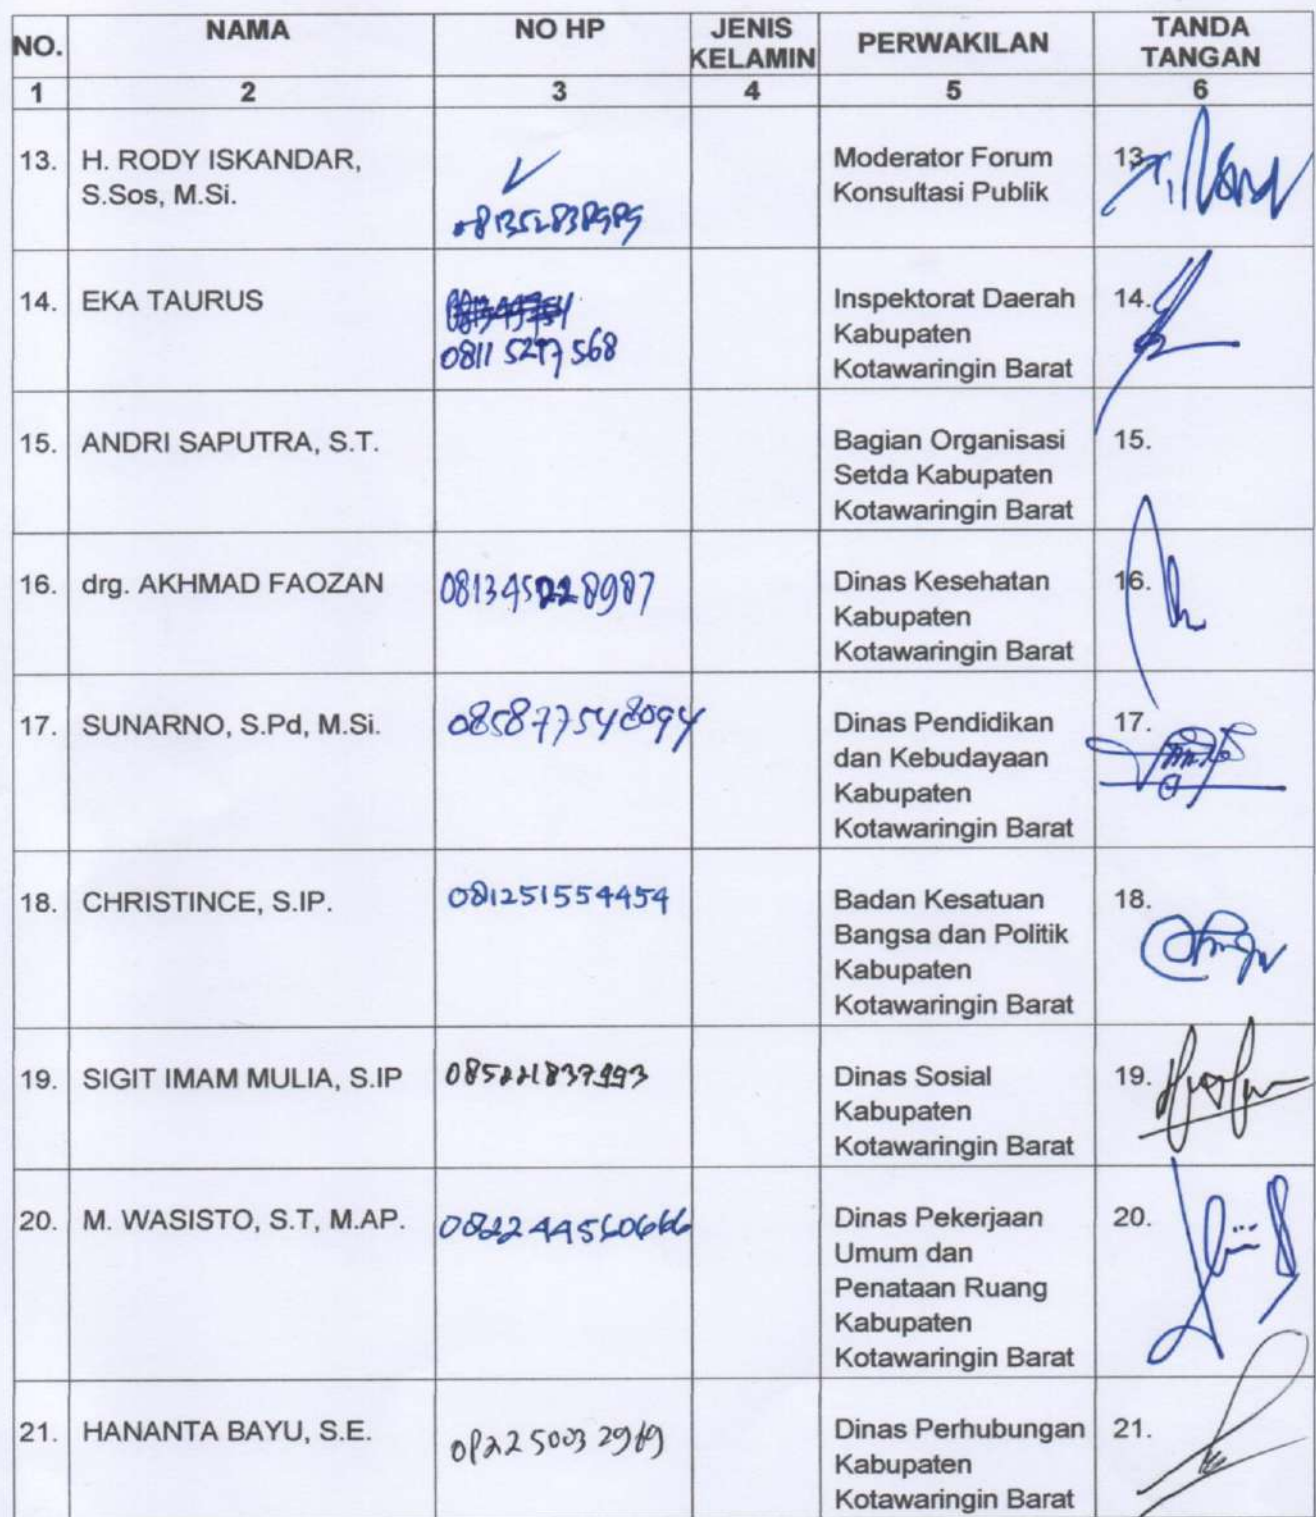 NO. NAMA NO HP JENIS KELAMIN PERWAKILAN TANDA TANGAN
1 2 3 4 5 6
13. H. RODY ISKANDAR, Moderator Forum 13.
S.Sos, M.Si. Konsultasi Publik
14. EKA TAURUS Inspektorat Daerah 14.
Kabupaten
0811 5297 568 Kotawaringin Barat
15. ANDRI SAPUTRA, S.T. Bagian Organisasi 15.
Setda Kabupaten
Kotawaringin Barat
16. drg. AKHMAD FAOZAN 081345228987 Dinas Kesehatan 16.
Kabupaten
Kotawaringin Barat
17. SUNARNO, S.Pd, M.Si. 085877548094 Dinas Pendidikan 17.
dan Kebudayaan
Kabupaten
Kotawaringin Barat
18. CHRISTINCE, S.IP. 081251554454 Badan Kesatuan 18.
Bangsa dan Politik
Kabupaten
Kotawaringin Barat
19. SIGIT IMAM MULIA, S.IP 085221837993 Dinas Sosial 19.
Kabupaten
Kotawaringin Barat
20. M. WASISTO, S.T, M.AP. Dinas Pekerjaan 20.
Umum dan
Penataan Ruang
Kabupaten
Kotawaringin Barat
21. HANANTA BAYU, S.E. Dinas Perhubungan 21.
Kabupaten
Kotawaringin Barat